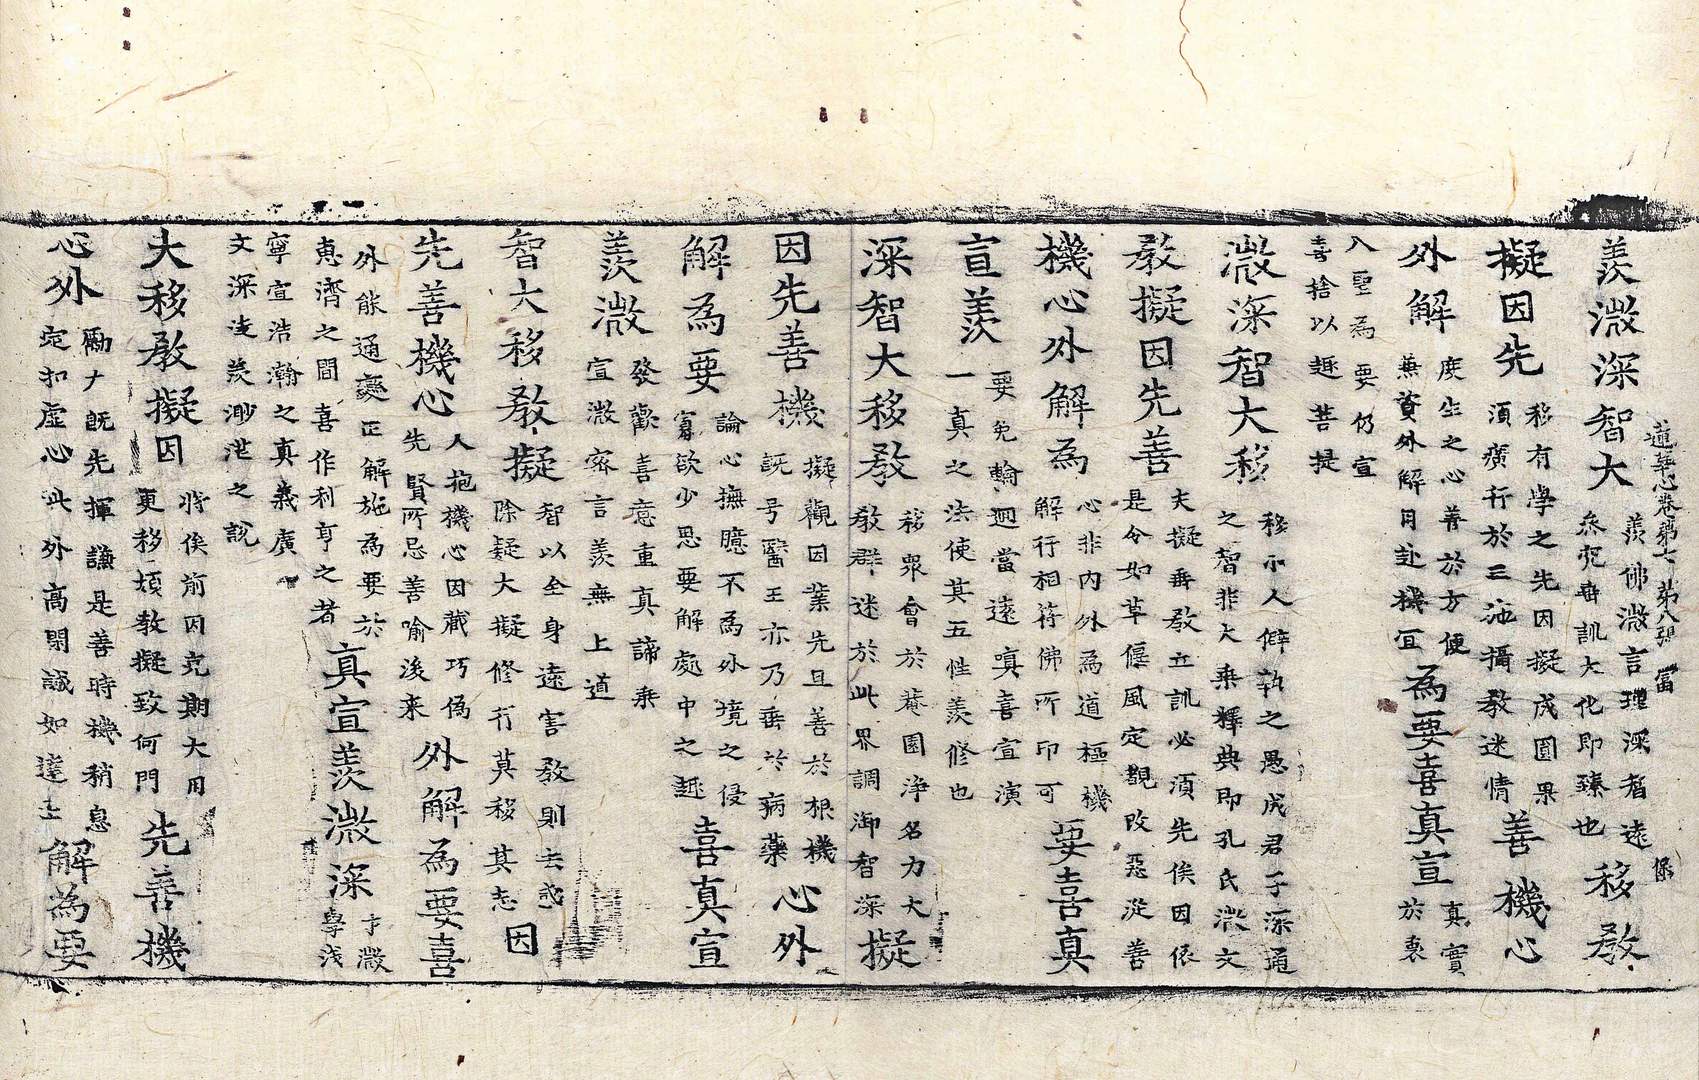 蓮華心卷第七 第八張 富
羨溦深智大
羨佛溦言理深者遠
訓大化即臻也
移教
擬因先
移有學之先因擬成圓果
須廣行於三池攝教迷情
善機心
外解
度生之心善於方便
兼資外解用赴機宜
為要喜真宣
真實
於裏
入聖為要仍宣
喜捨以趣菩提
溦深智大移
移示人僻執之愚成君子深通
之智非大乘釋典即孔氏溦文
教擬因先善
夫擬垂教立訓必須先俟因依
是令如草偃風定覩改惡從善
機心外解為
心非内外為道樞機
解行相符佛所印可
要喜真
宣羨
要免輪迴當遠嗔喜宣演
一真之法使其五性羨修也
深智大移教
移衆會於菴園浄名力大
教群迷於此界調御智深
擬
因先善機
擬觀因業先且善於根機
既号醫王亦乃垂於病藥
心外
解為要
論心撫臆不為外境之侵
寡欲少思要解處中之趣
喜真宣
羨溦
發歡喜意重真諦乘
宣溦密言羨無上道
智大移教擬
智以全身遠害教則去惑
除疑大擬修行莫移其志
因
先善機心
人抱機心因藏巧偽
先賢所忌善喻後来
外解為要喜
外能通變正解施為要於
惠濟之間喜作利亨之者
真宣羨溦深
才溦
學浅
寧宣浩瀚之真義廣
文深淩羨渺茫之說
大移教擬因
將俟前因克期大用
更移煩教擬致何門
先善機
心外
勵才既先揮謙是善時機稍息
定扣虛心此外高閑誠如達士
解為要